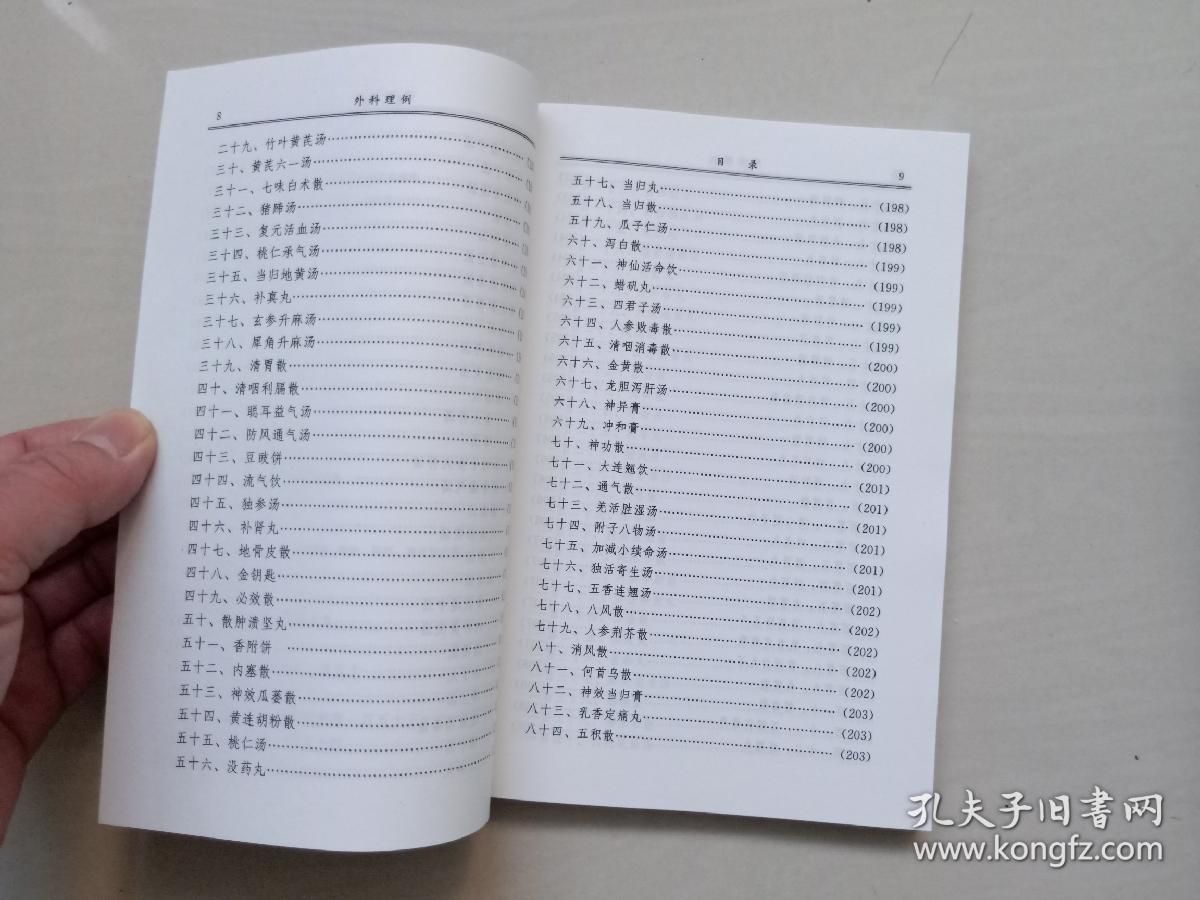 8
外科理例
二十九、竹叶黄芪汤
三十、黄芪六一汤
三十一、七味白术散
三十二、猪蹄汤
三十三、复元活血汤
三十四、桃仁承气汤
三十五、当归地黄汤
三十六、补真丸
三十七、玄参升麻汤
三十八、犀角升麻汤
三十九、清胃散
四十、清咽利膈散
四十一、聪耳益气汤
四十二、防风通气汤
四十三、豆豉饼
四十四、流气饮
四十五、独参汤
四十六、补肾丸
四十七、地骨皮散
四十八、金钥匙
四十九、必效散
五十、散肿溃坚丸
五十一、香附饼
五十二、内塞散
五十三、神效瓜蒌散
五十四、黄连胡粉散
五十五、桃仁汤
五十六、没药丸
目 录
9
五十七、当归丸……(198)
五十八、当归散……(198)
五十九、瓜子仁汤……(198)
六十、泻白散……(199)
六十一、神仙活命饮……(199)
六十二、蜡矾丸……(199)
六十三、四君子汤……(199)
六十四、人参败毒散……(199)
六十五、清咽消毒散……(200)
六十六、金黄散……(200)
六十七、龙胆泻肝汤……(200)
六十八、神异膏……(200)
六十九、冲和膏……(200)
七十、神功散……(200)
七十一、大连翘饮……(201)
七十二、通气散……(201)
七十三、羌活胜湿汤……(201)
七十四、附子八物汤……(201)
七十五、加减小续命汤……(201)
七十六、独活寄生汤……(201)
七十七、五香连翘汤……(202)
七十八、八风散……(202)
七十九、人参荆芥散……(202)
八十、消风散……(202)
八十一、何首乌散……(202)
八十二、神效当归膏……(203)
八十三、乳香定痛丸……(203)
八十四、五积散……(203)
孔夫子旧书网
www.kongfz.com